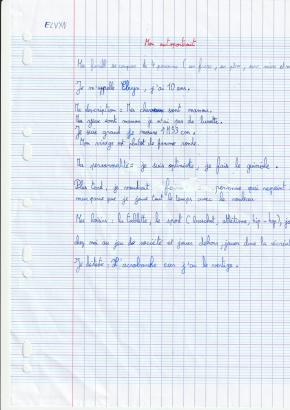 ELVYN
Mon autoportrait
Ma famille se compose de 4 personnes ( un frère, un père, une mère et m
Je m'appelle Elvyn, j'ai 10 ans.
Ma description : Mes cheveux sont marrons.
Mes yeux sont marron je n'ai pas de lunette.
Je suis grand je mesure 1m53 cm.
Mon visage est plutôt de forme ronde.
Ma personnalité = je suis optimiste, je fais le guignole.
Plus tard, je voudrait personne qui
parce que je joue tout le temps avec la
Mes loisirs : la tablette, le sport ( handball, athlétisme, hip-hop), je
chez moi au jeu de société et jouer dehors, jouer dans la
Je déteste : L'acrobranche car j'ai le vertige.